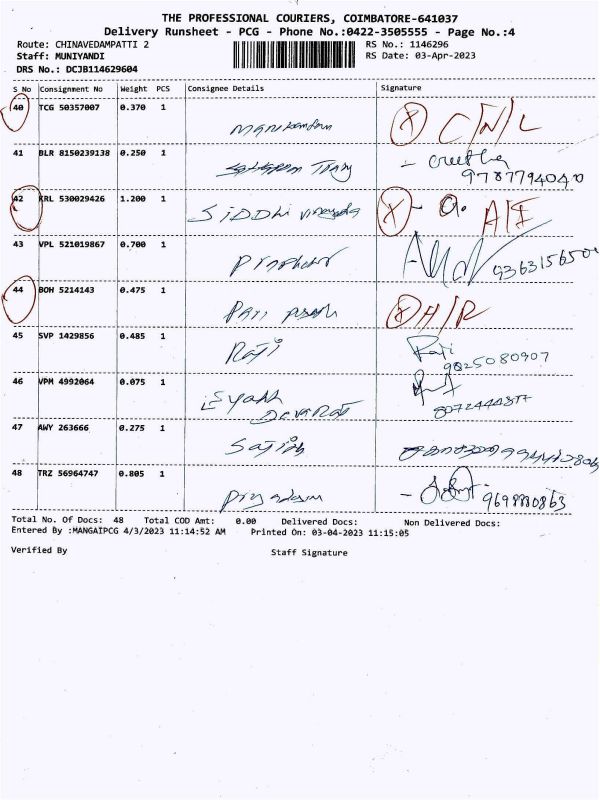 THE PROFESSIONAL COURIERS, COIMBATORE-641037
Delivery Runsheet - PCG - Phone No.:0422-3505555 - Page No.:4
Route: CHINAVEDAMPATTI 2 RS No.: 1146296
Staff: MUNIYANDI RS Date: 03-Apr-2023
DRS No.: DCJB114629604
S No Consignment No Weight PCS Consignee Details Signature
40 TCG 50357007 0.370 1 Manikandan X C/N/L
41 BLR 8150239138 0.250 1 9787794040
42 KRL 530029426 1.200 1 SIDDhi vinayaka X
43 VPL 521019867 0.700 1
44 BOH 5214143 0.475 1 X
45 SVP 1429856 0.485 1 Raji Raji
9825080907
46 VPM 4992064 0.075 1
47 AWY 263666 0.275 1
48 TRZ 56964747 0.805 1
Total No. Of Docs: 48 Total COD Amt: 0.00 Delivered Docs: Non Delivered Docs:
Entered By :MANGAIPCG 4/3/2023 11:14:52 AM Printed On: 03-04-2023 11:15:05
Verified By Staff Signature